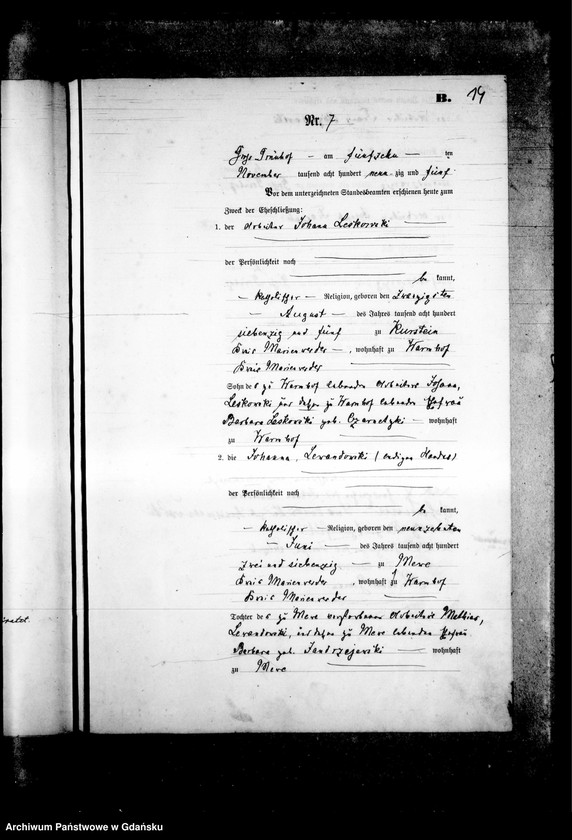 B. 14
Nr. 7
Groß Grünhof — am fünfzehn — ten
November tausend acht hundert neun zig und fünf
Vor dem unterzeichneten Standesbeamten erschienen heute zum
Zweck der Eheschließung:
1. der Arbeiter Johann Leskowski
der Persönlichkeit nach
be kannt,
— katholischer — Religion, geboren den zwanzigsten
— August — des Jahres tausend acht hundert
siebenzig und fünf zu Kurstein
Kreis Marienwerder —, wohnhaft zu Warmhof
Kreis Marienwerder
Sohn des zu Warmhof lebenden Arbeiters Johann
Leskowski und dessen zu Warmhof lebenden Ehefrau
Barbara Leskowski geb. Czarnetzki — wohnhaft
zu Warmhof
2. die Johanna Lewandowski (ledigen Standes)
der Persönlichkeit nach
be kannt,
— katholischer — Religion, geboren den neunzehnten
— Juni — des Jahres tausend acht hundert
zwei und siebenzig — zu Mewe
Kreis Marienwerder, wohnhaft zu Warmhof
Kreis Marienwerder
Tochter des zu Mewe verstorbenen Arbeiters Mathias
Lewandowski, und dessen zu Mewe lebenden Ehefrau
Barbara geb. Jandrzejewski — wohnhaft
zu Mewe
Archiwum Państwowe w Gdańsku